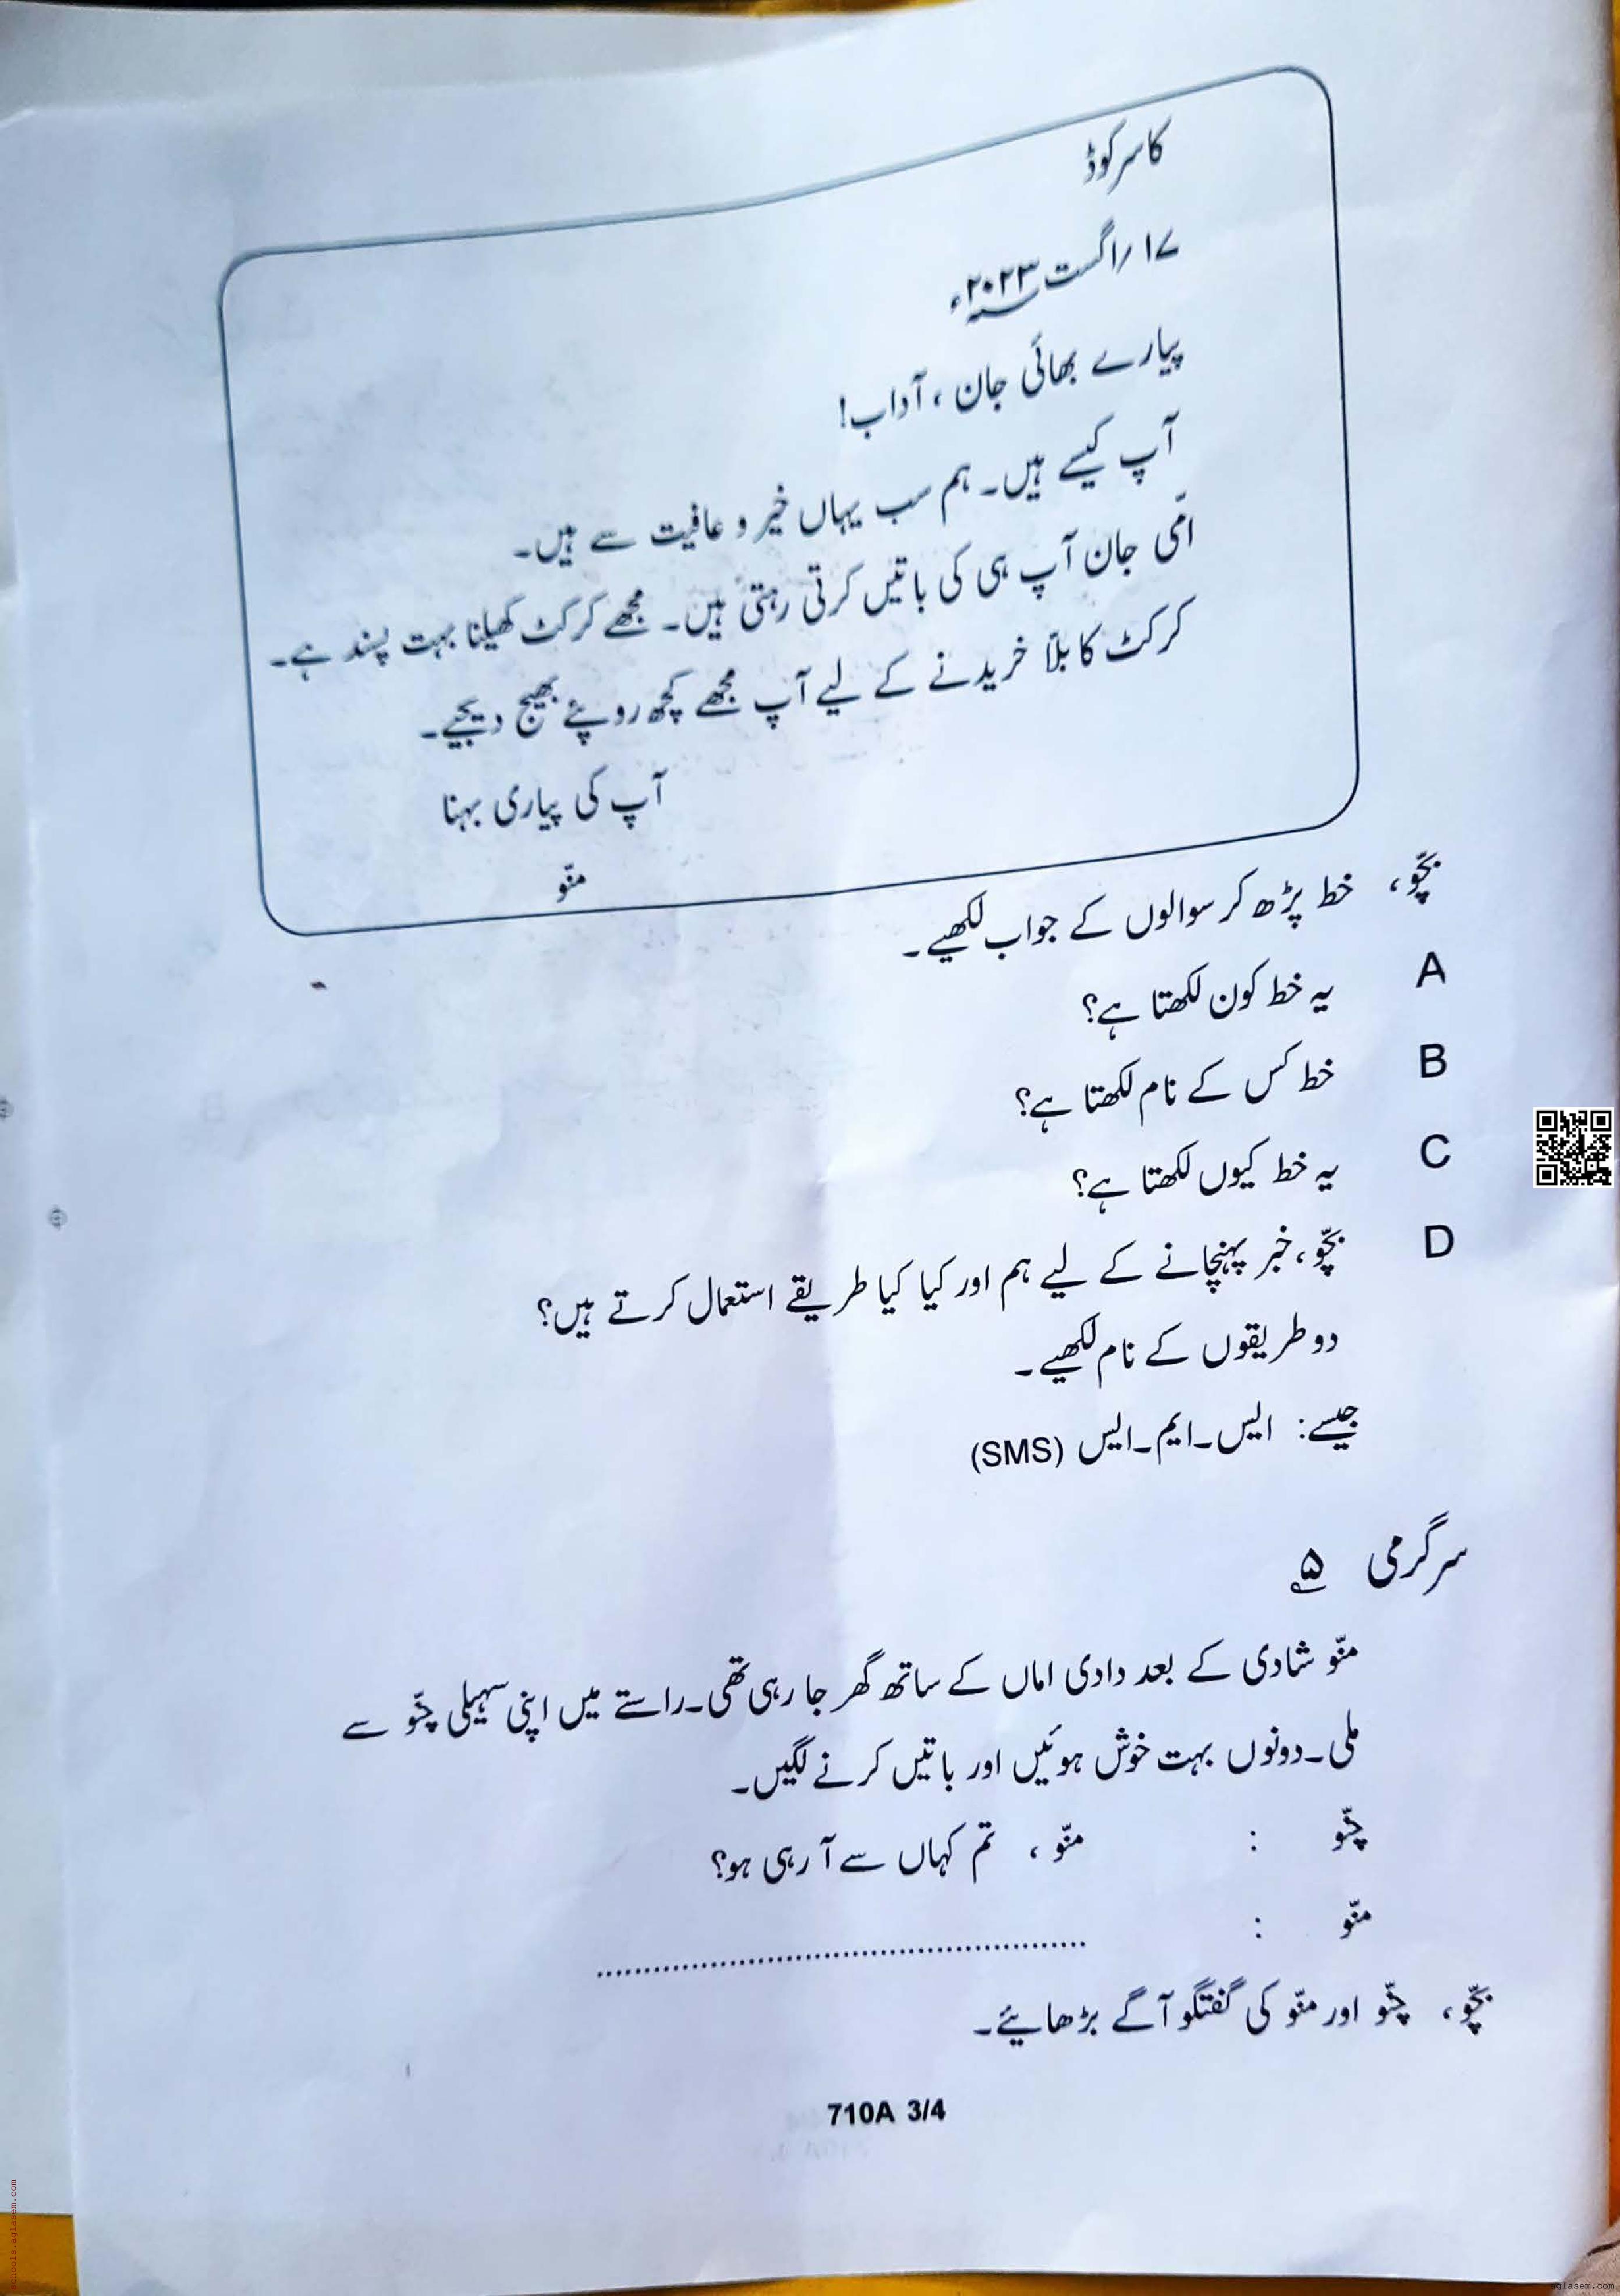 کاسرکوڈ
۱۷؍اگست ۲۰۲۳ء
پیارے بھائی جان ، آداب!
آپ کیسے ہیں۔ ہم سب یہاں خیر و عافیت سے ہیں۔
امّی جان آپ ہی کی باتیں کرتی رہتی ہیں۔ مجھے کرکٹ کھیلنا بہت پسند ہے۔
کرکٹ کا بلّا خریدنے کے لیے آپ مجھے کچھ روپئے بھیج دیجیے۔
آپ کی پیاری بہنا
منّو
بچّو، خط پڑھ کر سوالوں کے جواب لکھیے۔
A یہ خط کون لکھتا ہے؟
B خط کس کے نام لکھتا ہے؟
C یہ خط کیوں لکھتا ہے؟
D بچّو، خبر پہنچانے کے لیے ہم اور کیا کیا طریقے استعمال کرتے ہیں؟
دو طریقوں کے نام لکھیے۔
جیسے: ایس۔ایم۔ایس (SMS)
سرگرمی ۵
منّو شادی کے بعد دادی اماں کے ساتھ گھر جا رہی تھی۔راستے میں اپنی سہیلی چنّو سے
ملی۔دونوں بہت خوش ہوئیں اور باتیں کرنے لگیں۔
چنّو : منّو ، تم کہاں سے آ رہی ہو؟
منّو : ......................................................
بچّو، چنّو اور منّو کی گفتگو آگے بڑھائیے۔
710A 3/4
schools.aglasem.com
aglasem.com